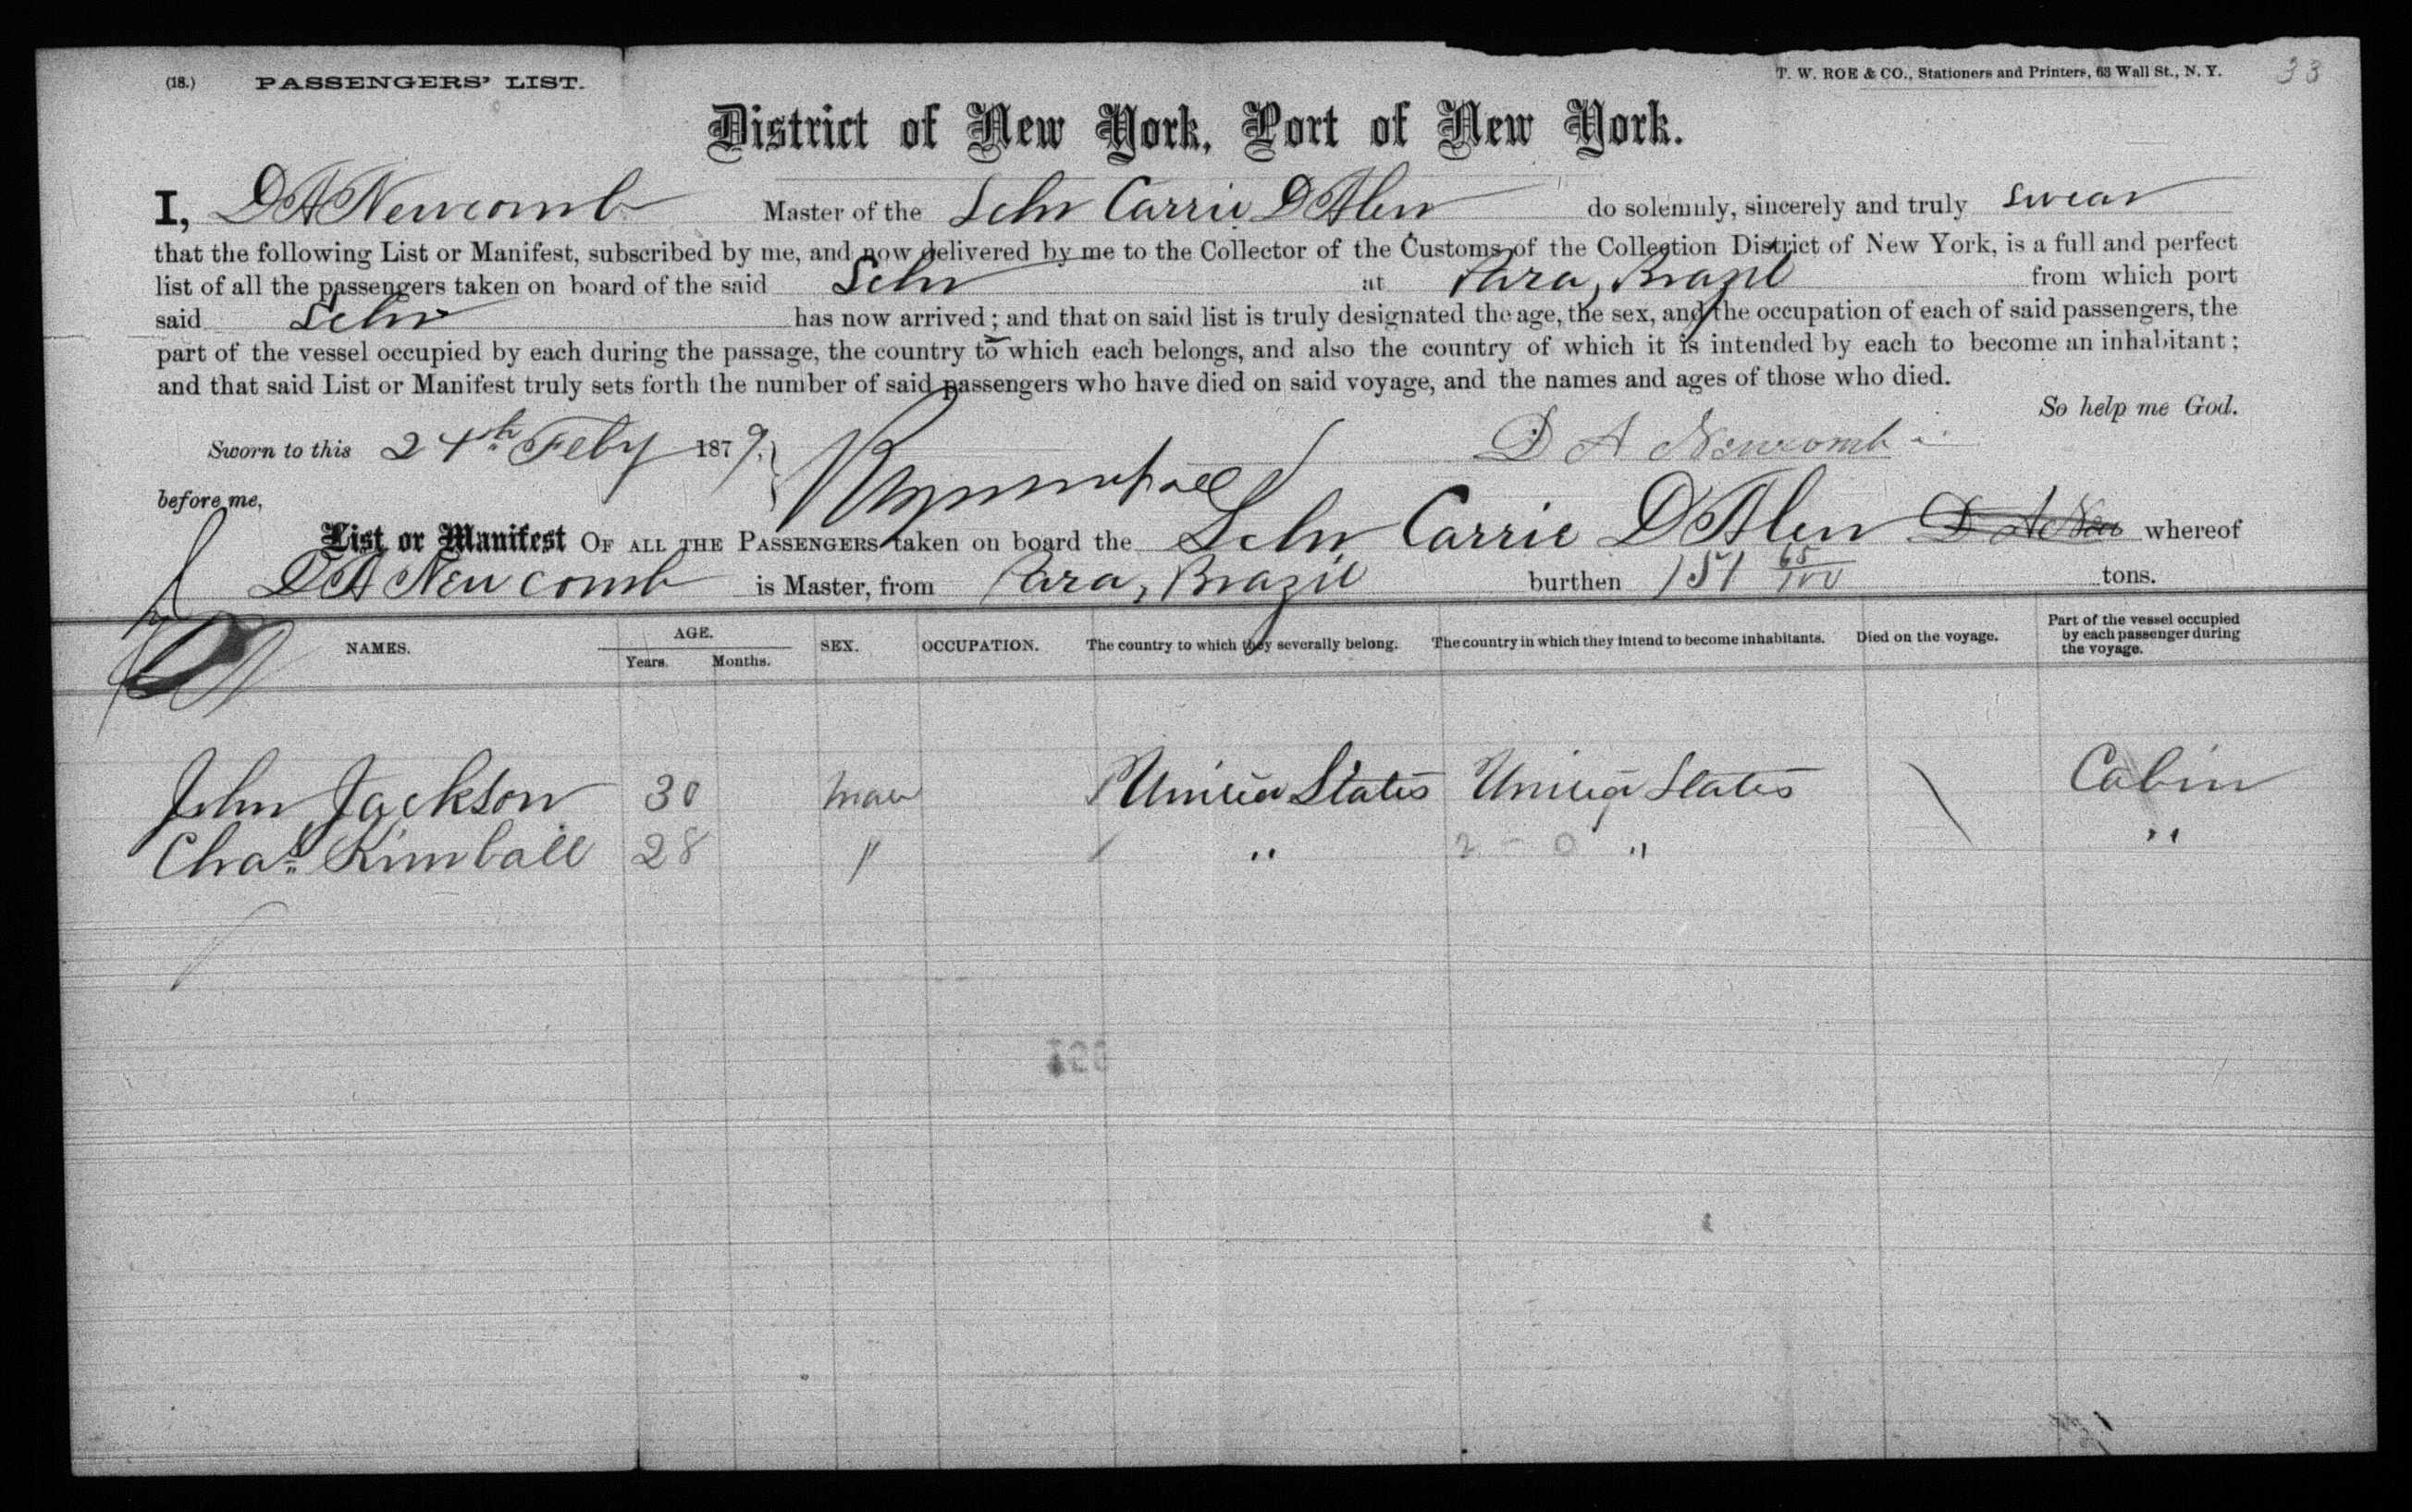 (18.) PASSENGERS' LIST. T. W. ROE & CO., Stationers and Printers, 63 Wall St., N. Y. 33
District of New York, Port of New York.
I, D A Newcomb Master of the Schr Carrie D Allen do solemnly, sincerely and truly swear
that the following List or Manifest, subscribed by me, and now delivered by me to the Collector of the Customs of the Collection District of New York, is a full and perfect
list of all the passengers taken on board of the said Schr at Para, Brazil from which port
said Schr has now arrived; and that on said list is truly designated the age, the sex, and the occupation of each of said passengers, the
part of the vessel occupied by each during the passage, the country to which each belongs, and also the country of which it is intended by each to become an inhabitant;
and that said List or Manifest truly sets forth the number of said passengers who have died on said voyage, and the names and ages of those who died.
So help me God.
Sworn to this 24th Feby 1879. D A Newcomb
before me,
List or Manifest OF ALL THE PASSENGERS taken on board the Schr Carrie D Allen D A New whereof
D A Newcomb is Master, from Para, Brazil burthen 151 65/100 tons.
NAMES. AGE. Years. Months. SEX. OCCUPATION. The country to which they severally belong. The country in which they intend to become inhabitants. Died on the voyage. Part of the vessel occupied by each passenger during the voyage.
John Jackson 30 Male United States United States Cabin
Chas. Kimball 28 " " " "